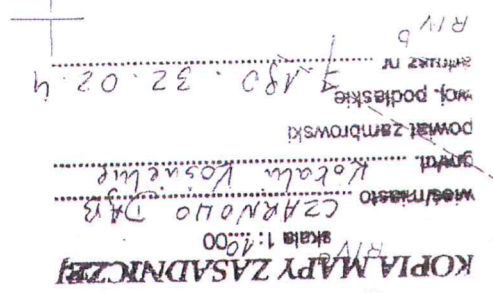 KOPIA MAPY ZASADNICZEJ
RIVb
skala 1:1000
wieś/miasto CZARNOWO DĄB
gmina
powiat zambrowski
woj. podlaskie
arkusz nr 7.180.32.02.4
RIVb